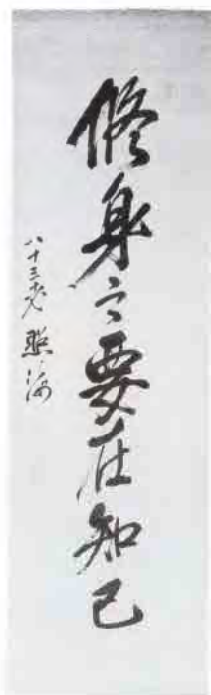 修身之要在知己
八十三叟 熙海